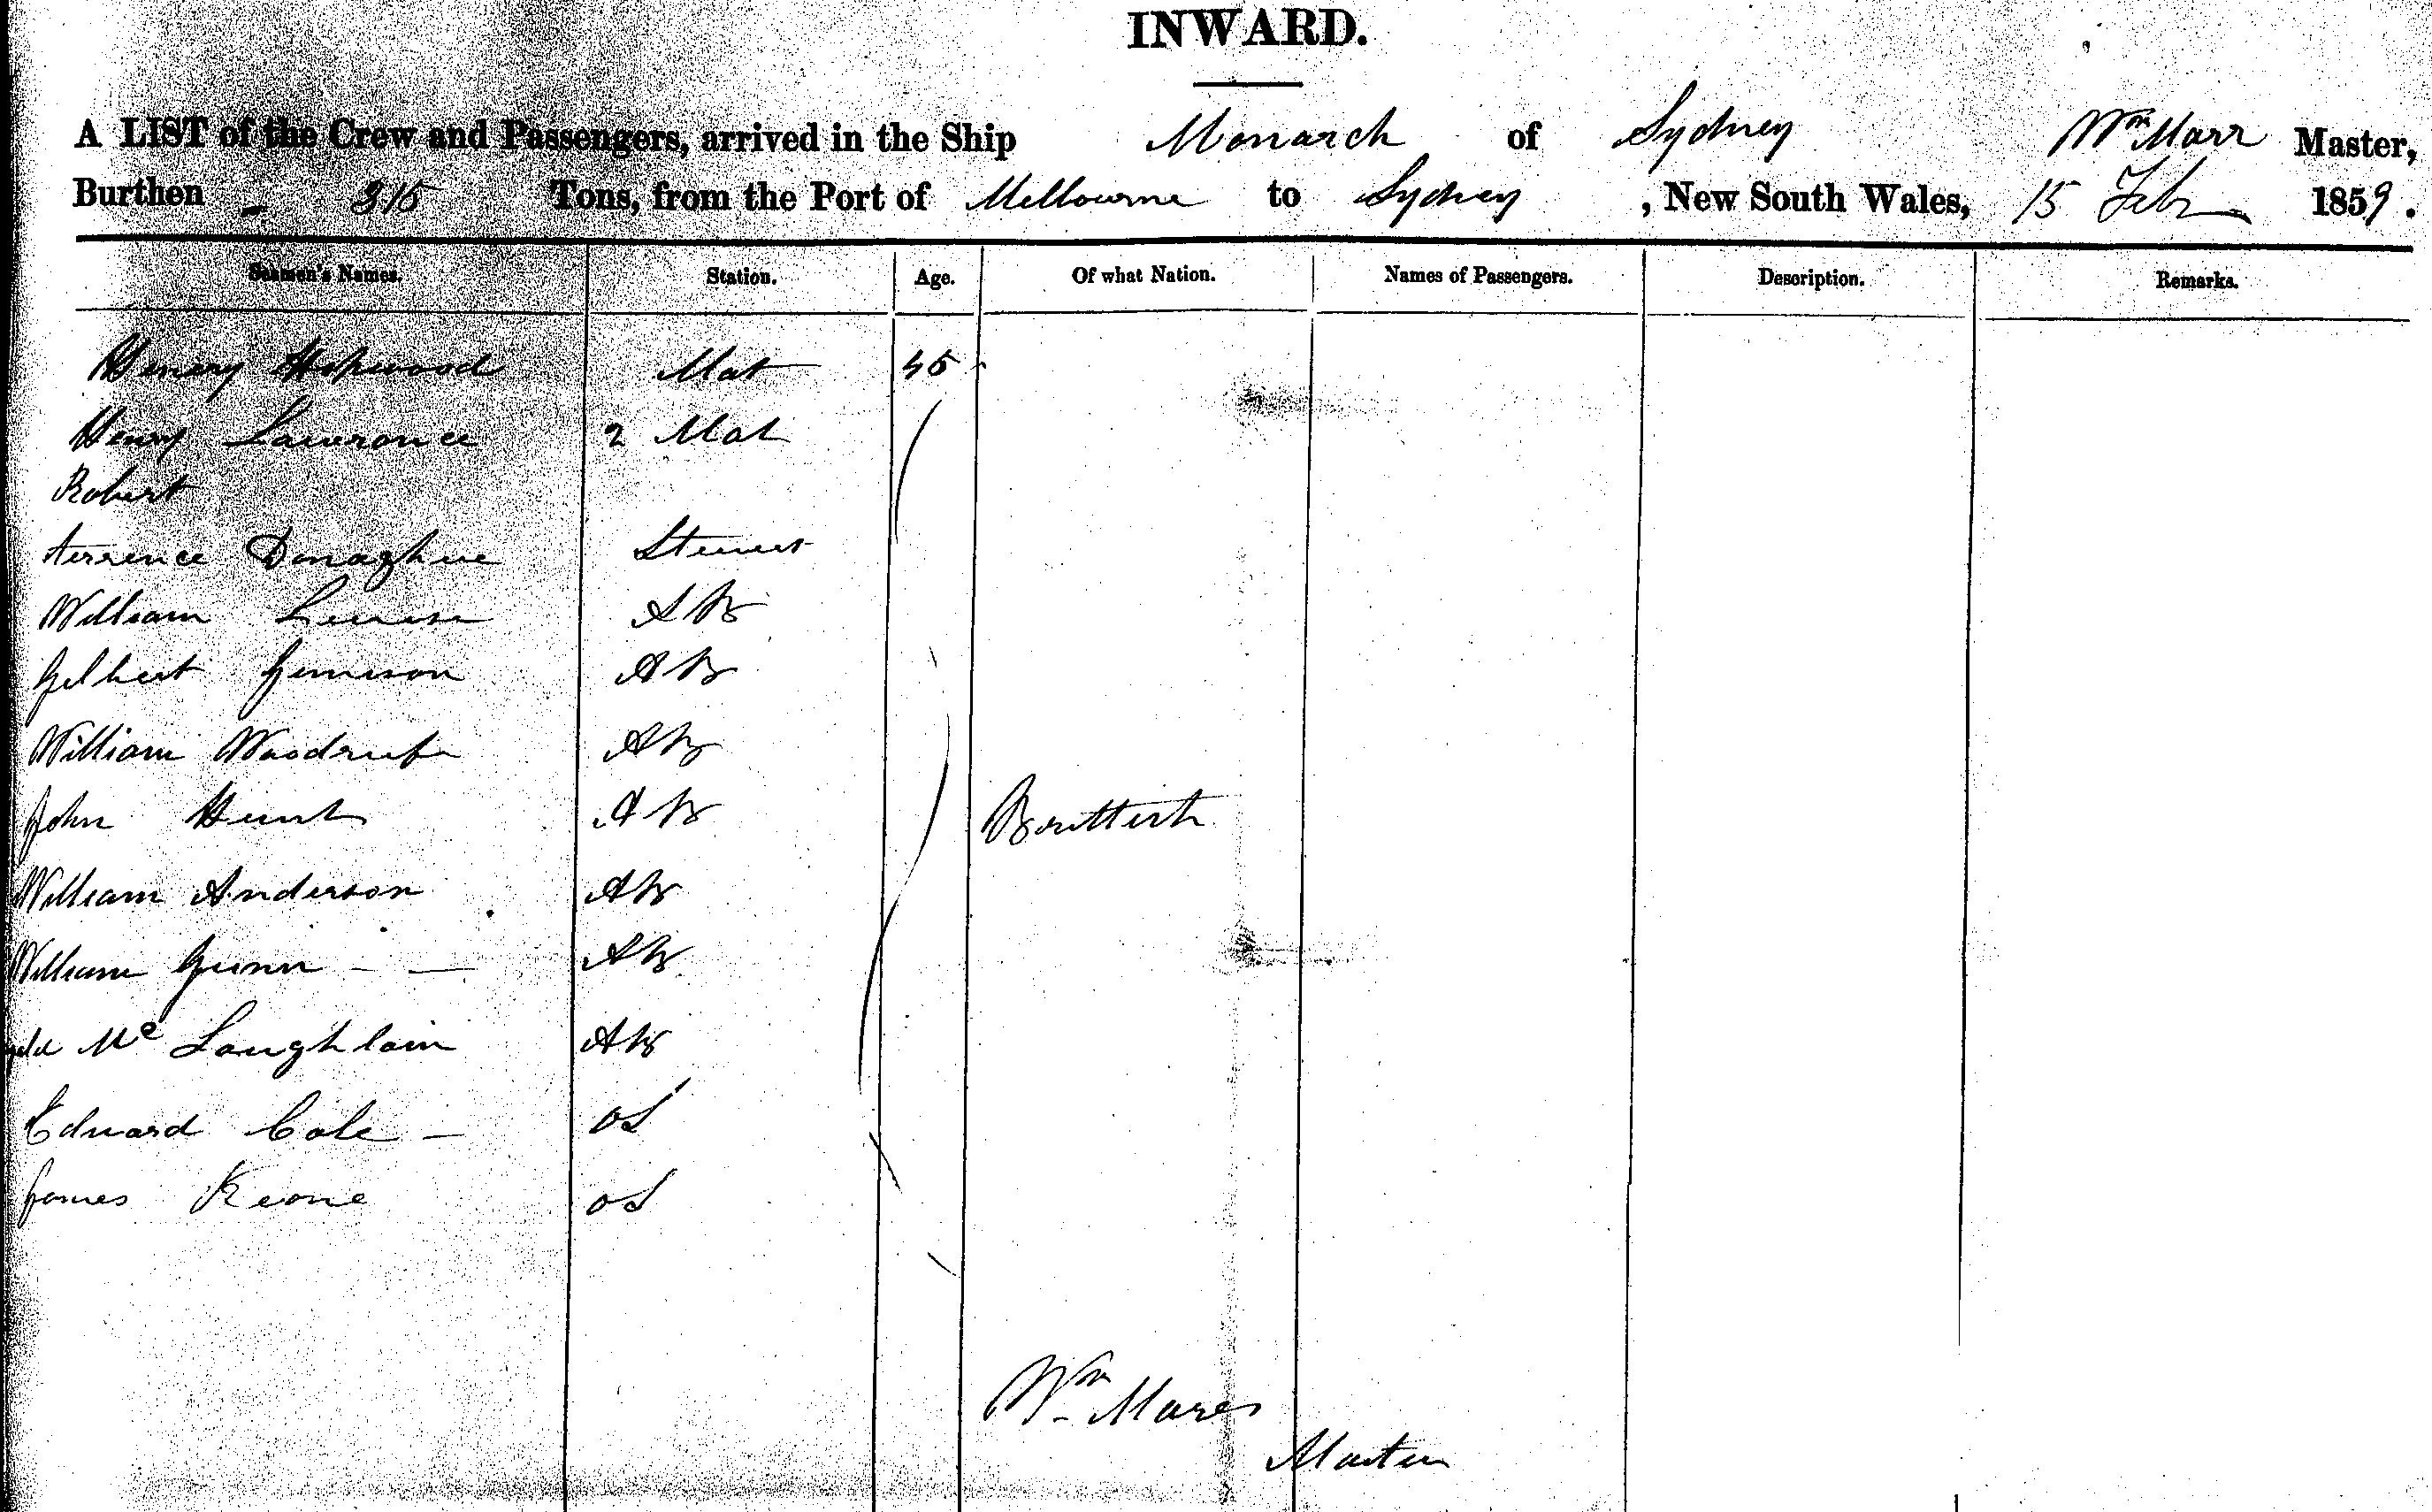 INWARD.
A LIST of the Crew and Passengers, arrived in the Ship Monarch of Sydney Wm Marr Master,
Burthen 315 Tons, from the Port of Melbourne to Sydney, New South Wales, 15 Feb 1859.
Seamen's Names. Station. Age. Of what Nation. Names of Passengers. Description. Remarks.
Henery Hopwood Mat 45
Henry Lawrance 2 Mat
Robert
Terrence Donaghue
William AB
Gilbert AB
William Woodruf AB
John Hunt AB Brittish
William Anderson AB
William Gunn - — AB
Mc Laughlain AB
Edward Cole - OS
James Keane OS
Wm Marr
Master